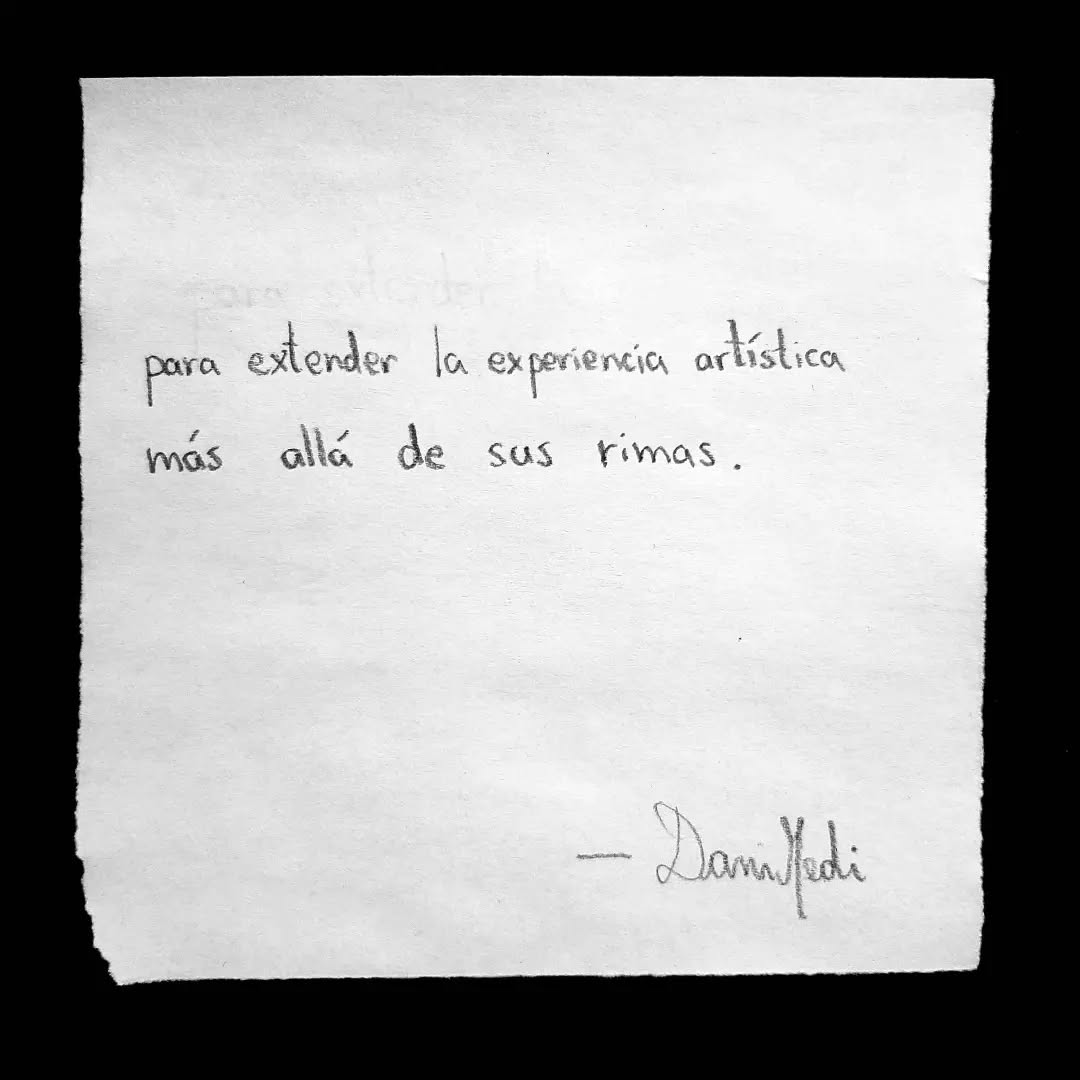 para extender
para extender la experiencia artística
más allá de sus rimas.
— DaniMedi